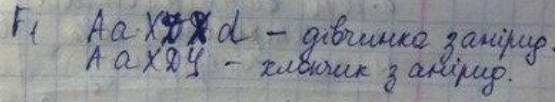 F1 AaXDXd – дівчинка з анірид.
AaXDY – хлопчик з анірид.